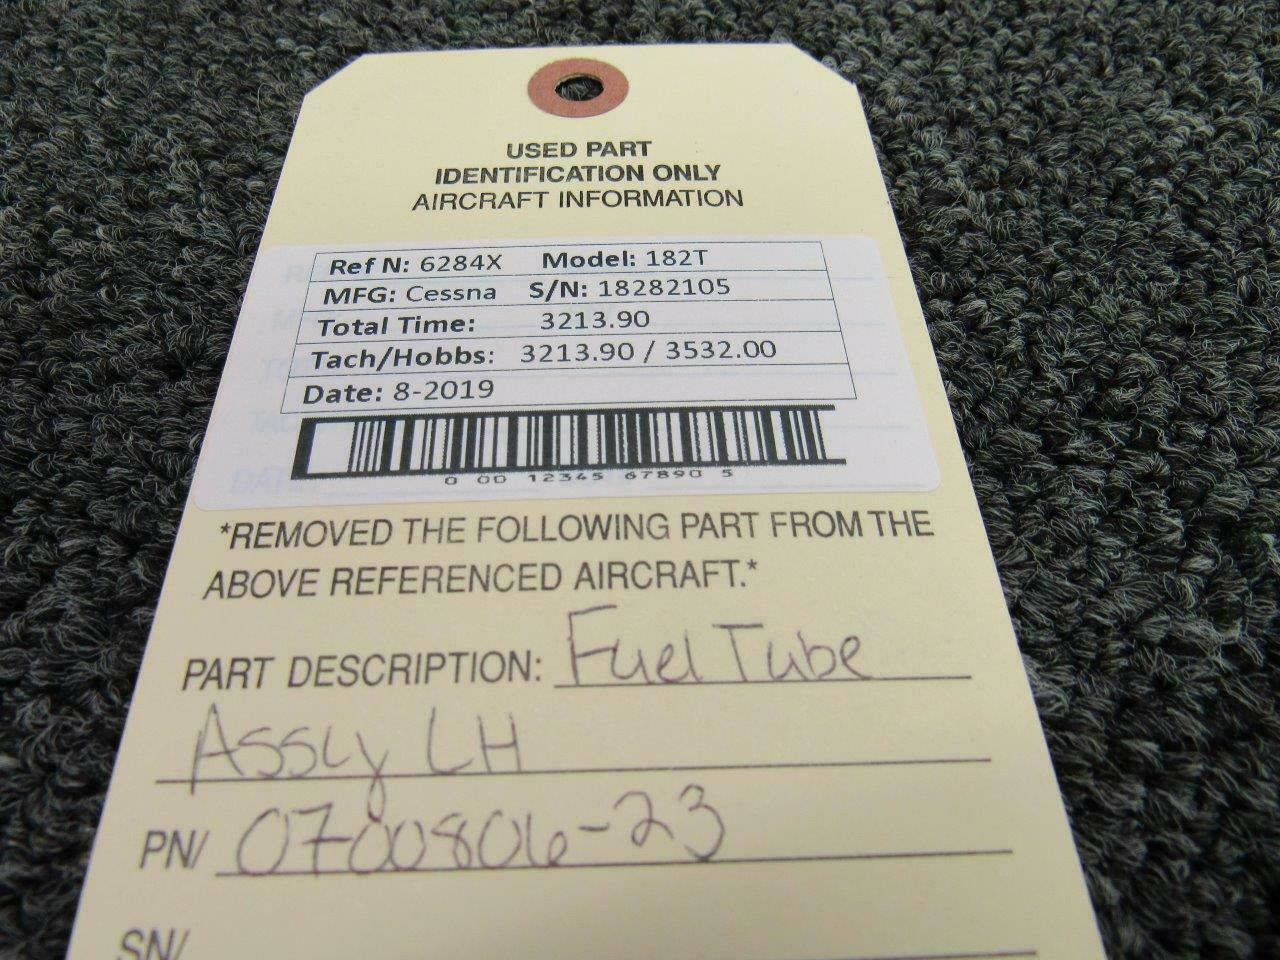 USED PART
IDENTIFICATION ONLY
AIRCRAFT INFORMATION
Ref N: 6284X Model: 182T
MFG: Cessna S/N: 18282105
Total Time: 3213.90
Tach/Hobbs: 3213.90 / 3532.00
Date: 8-2019
0 00 12345 67890 5
*REMOVED THE FOLLOWING PART FROM THE
ABOVE REFERENCED AIRCRAFT.*
PART DESCRIPTION: Fuel Tube
Assly LH
PN/ 0700806-23
SN/